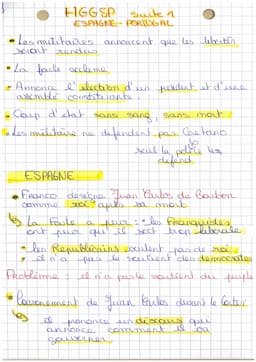 HGGSP suite 1
ESPAGNE-PORTUGAL
• Les militaires annoncent que les libertés
seront rendues
• La foule acclame
• Annonce l'élection d'un président et d'une
assemblé constituante.
• Coup d'état sans sang, sans mort
• Les militaire ne défendent pas Caetano
seul la police les
défend
ESPAGNE
• Franco désigne Juan Carlos de Bourbon
comme roi après sa mort
La foule a peur : • les Franquistes
ont peur qu'il soit trop libérale
• les Républicains veulent pas de roi
• il n'a pas le soutient des démocrates
Problème : il n'a pas le soutient du peuple
• Couronement de Juan Carlos devant le Cortes
il prononce un discours qui
annonce comment il va
gouverner.